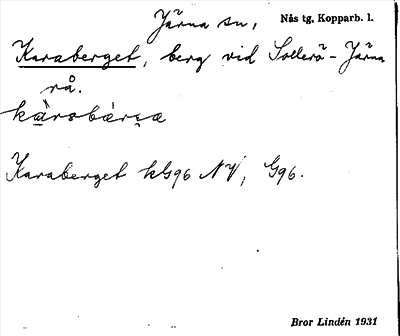 Järna sn, Nås tg, Kopparb. l.
Karaberget, berg vid Sollerö - Järna
rå.
Karaberget kG96 NV, G96.
Bror Lindén 1931